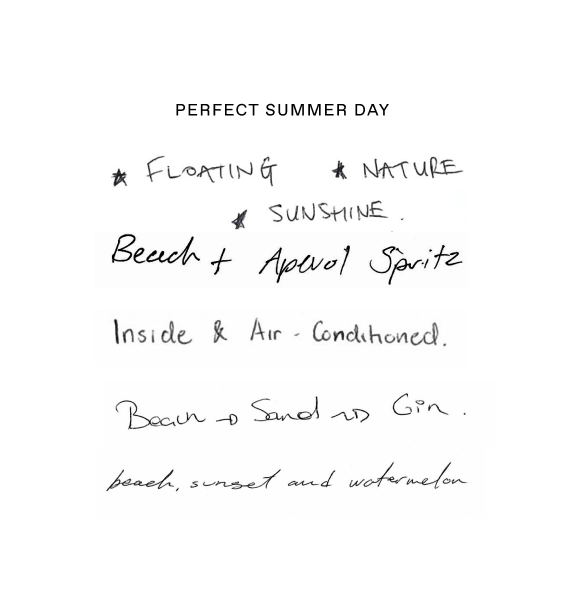 PERFECT SUMMER DAY
★ FLOATING ★ NATURE
★ SUNSHINE.
Beach + Aperol Spritz
Inside & Air-Conditioned.
Beach → Sand → Gin.
beach, sunset and watermelon